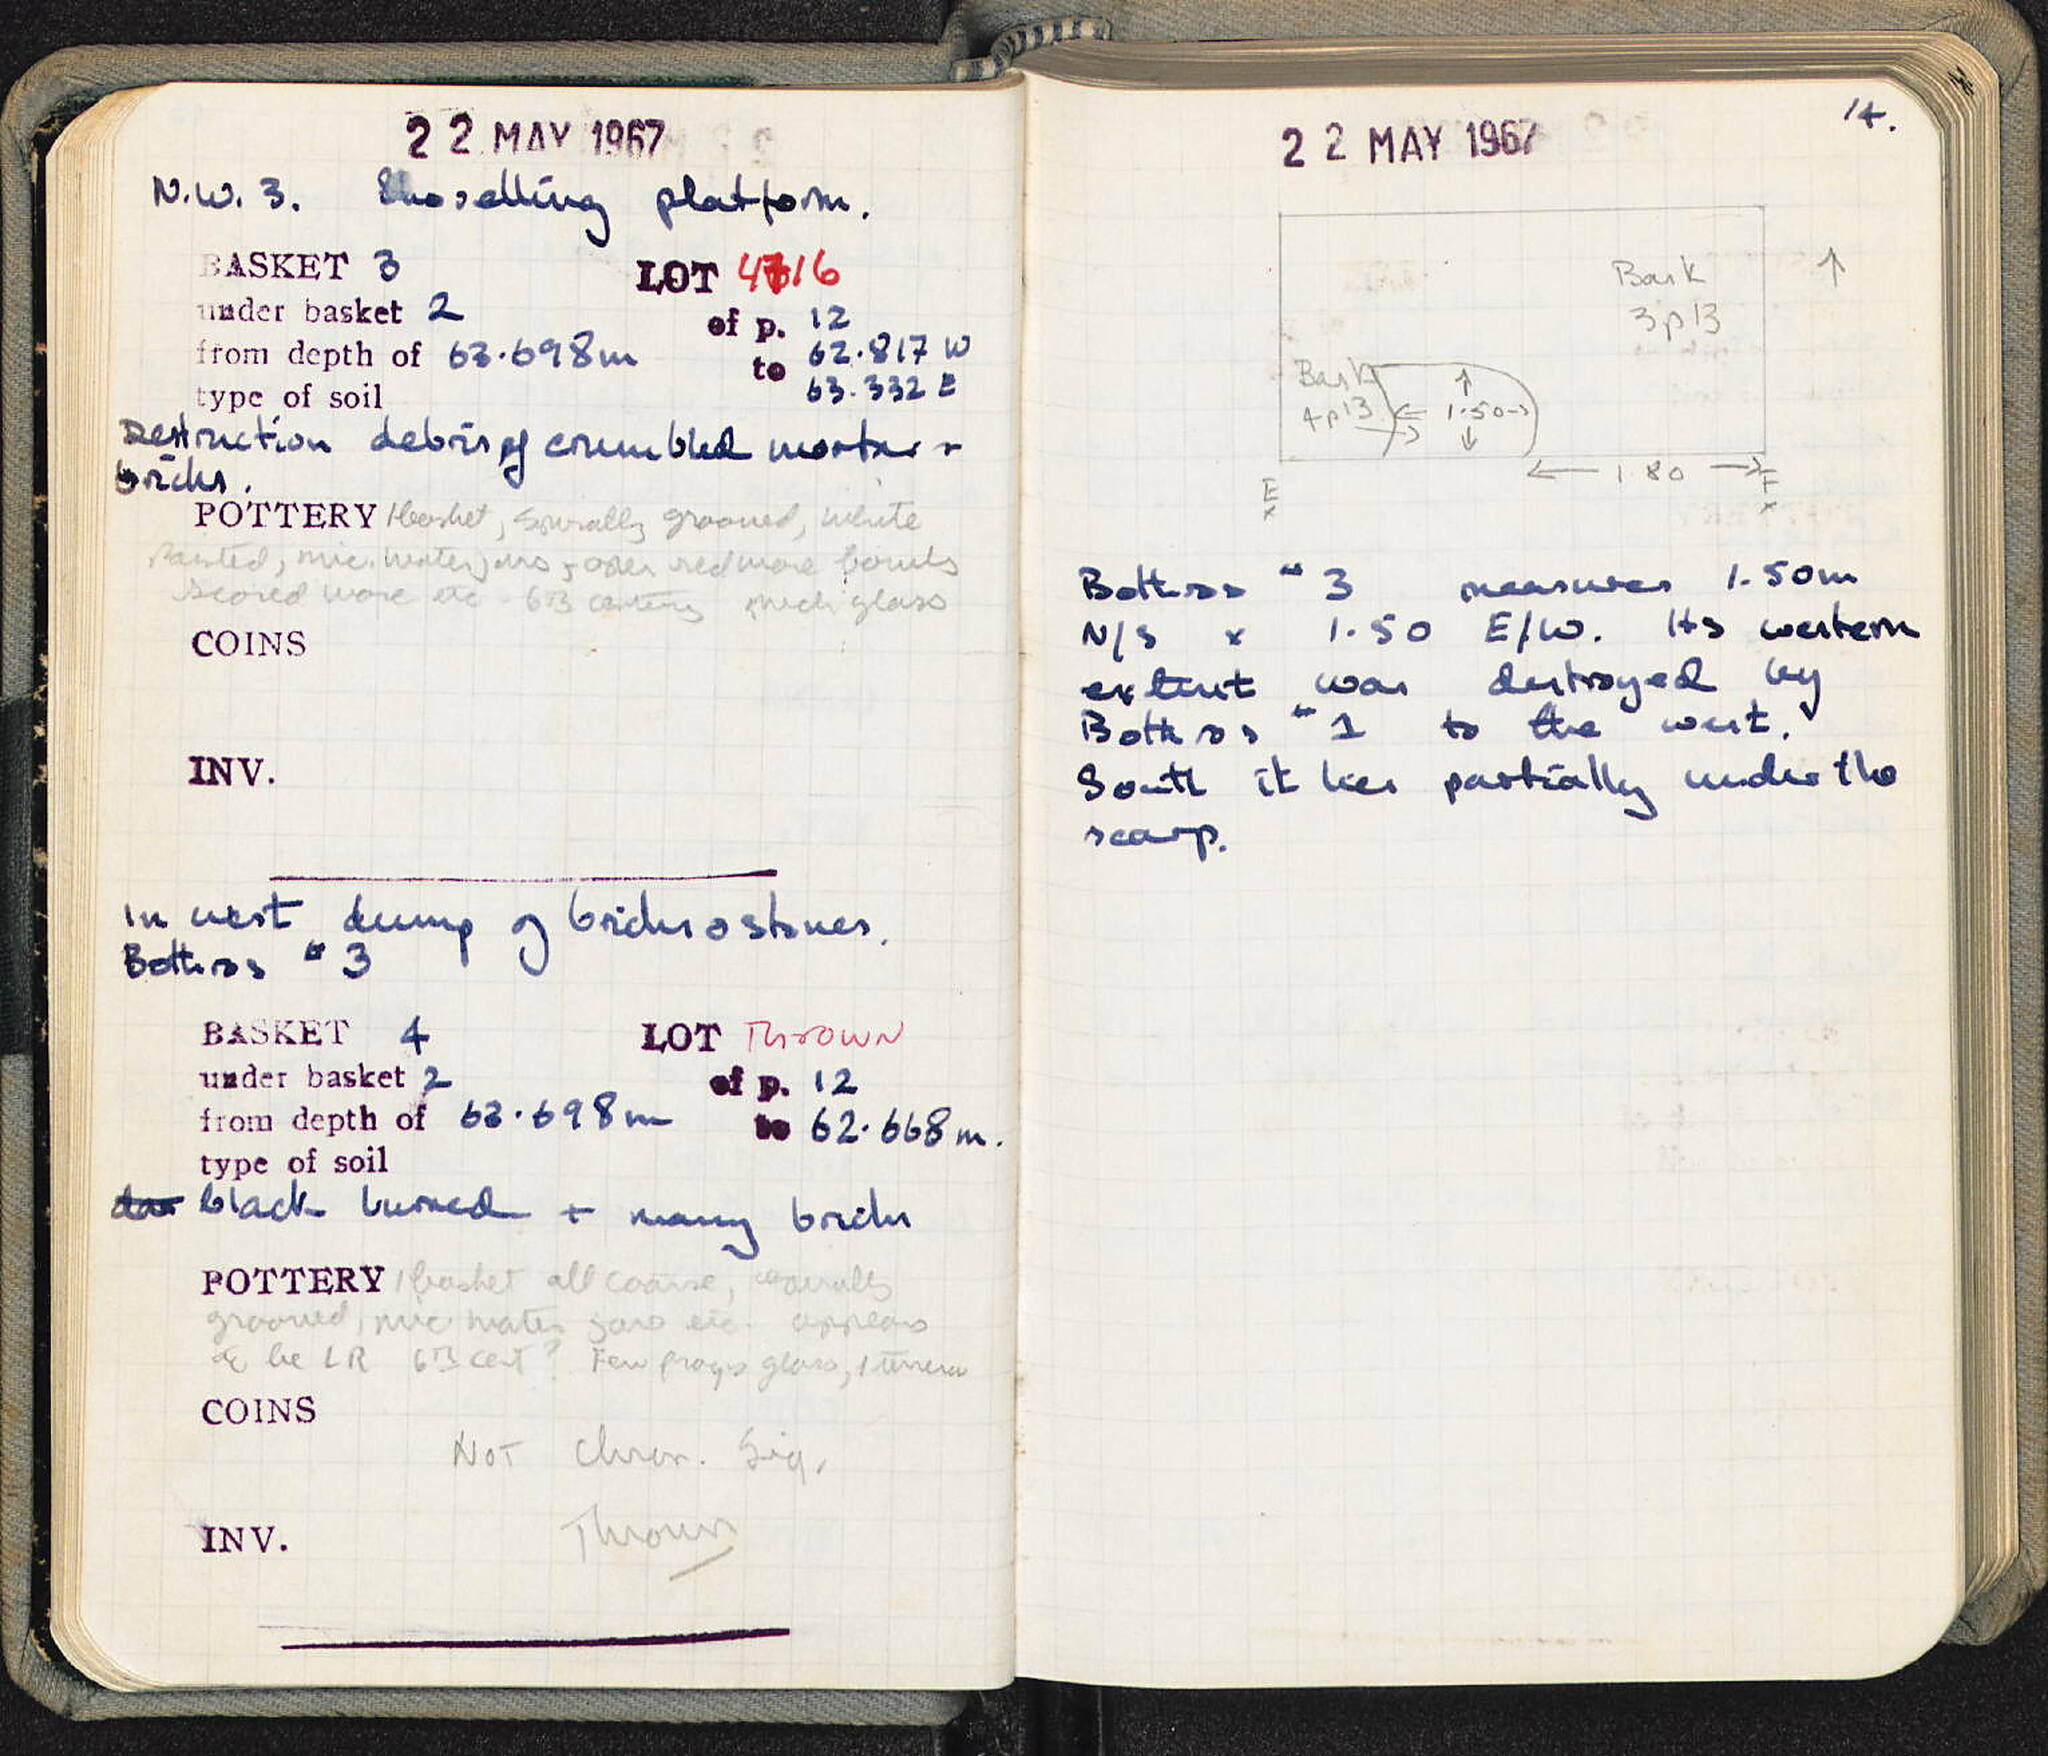 22 MAY 1967
N.W. 3. Shovelling platform.
BASKET 3 LOT 4716
under basket 2 of p. 12
from depth of 63.698m to 62.817 W
63.332 E
type of soil
Destruction debris of crumbled mortar +
bricks.
POTTERY 1 basket, spirally grooved, white
painted, mic. water jars + open redware bowls
scored ware etc 6th century much glass
COINS
INV.
In west dump of bricks + stones.
Bothros #3
BASKET 4 LOT THROWN
under basket 2 of p. 12
from depth of 63.698m to 62.668m.
type of soil
black burned + many bricks
POTTERY 1 basket all coarse, spirally
grooved, mic water jars etc. appears
to be LR 6th cent? Few frags glass, 1 tessera
COINS
NOT Chron. Sig.
INV. Thrown
14.
22 MAY 1967
Bask
3 p 13
Bask
4 p 13
1.50
1.80
Bothros #3 measures 1.50m
N/S x 1.50 E/W. Its western
extent was destroyed by
Bothros #1 to the west.
South it lies partially under the
scarp.